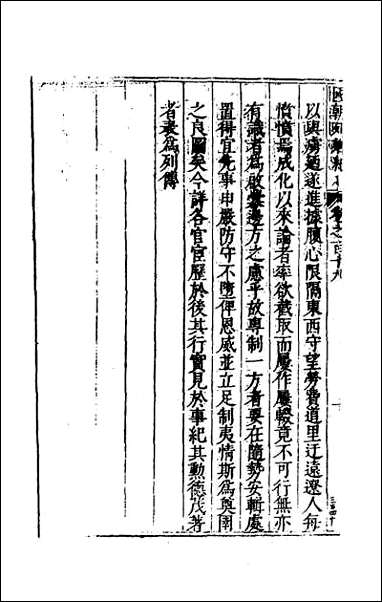 國朝獻徵錄 卷之一百十九
以與虜廼遂進據腹心限隔東西守望勞費道里迂遠遼人每
憤憤焉成化以來論者率欲截取而屢作屢輟竟不可行無亦
有識者為啟釁邊方之慮乎故專制一方者要在隨勢安輯處
置得宜先事申嚴防守不墮俾恩威並立足制夷情斯為與圉
之良圖矣今詳各官宦歷於後其行實見於事紀其勳德茂著
者裁為列傳